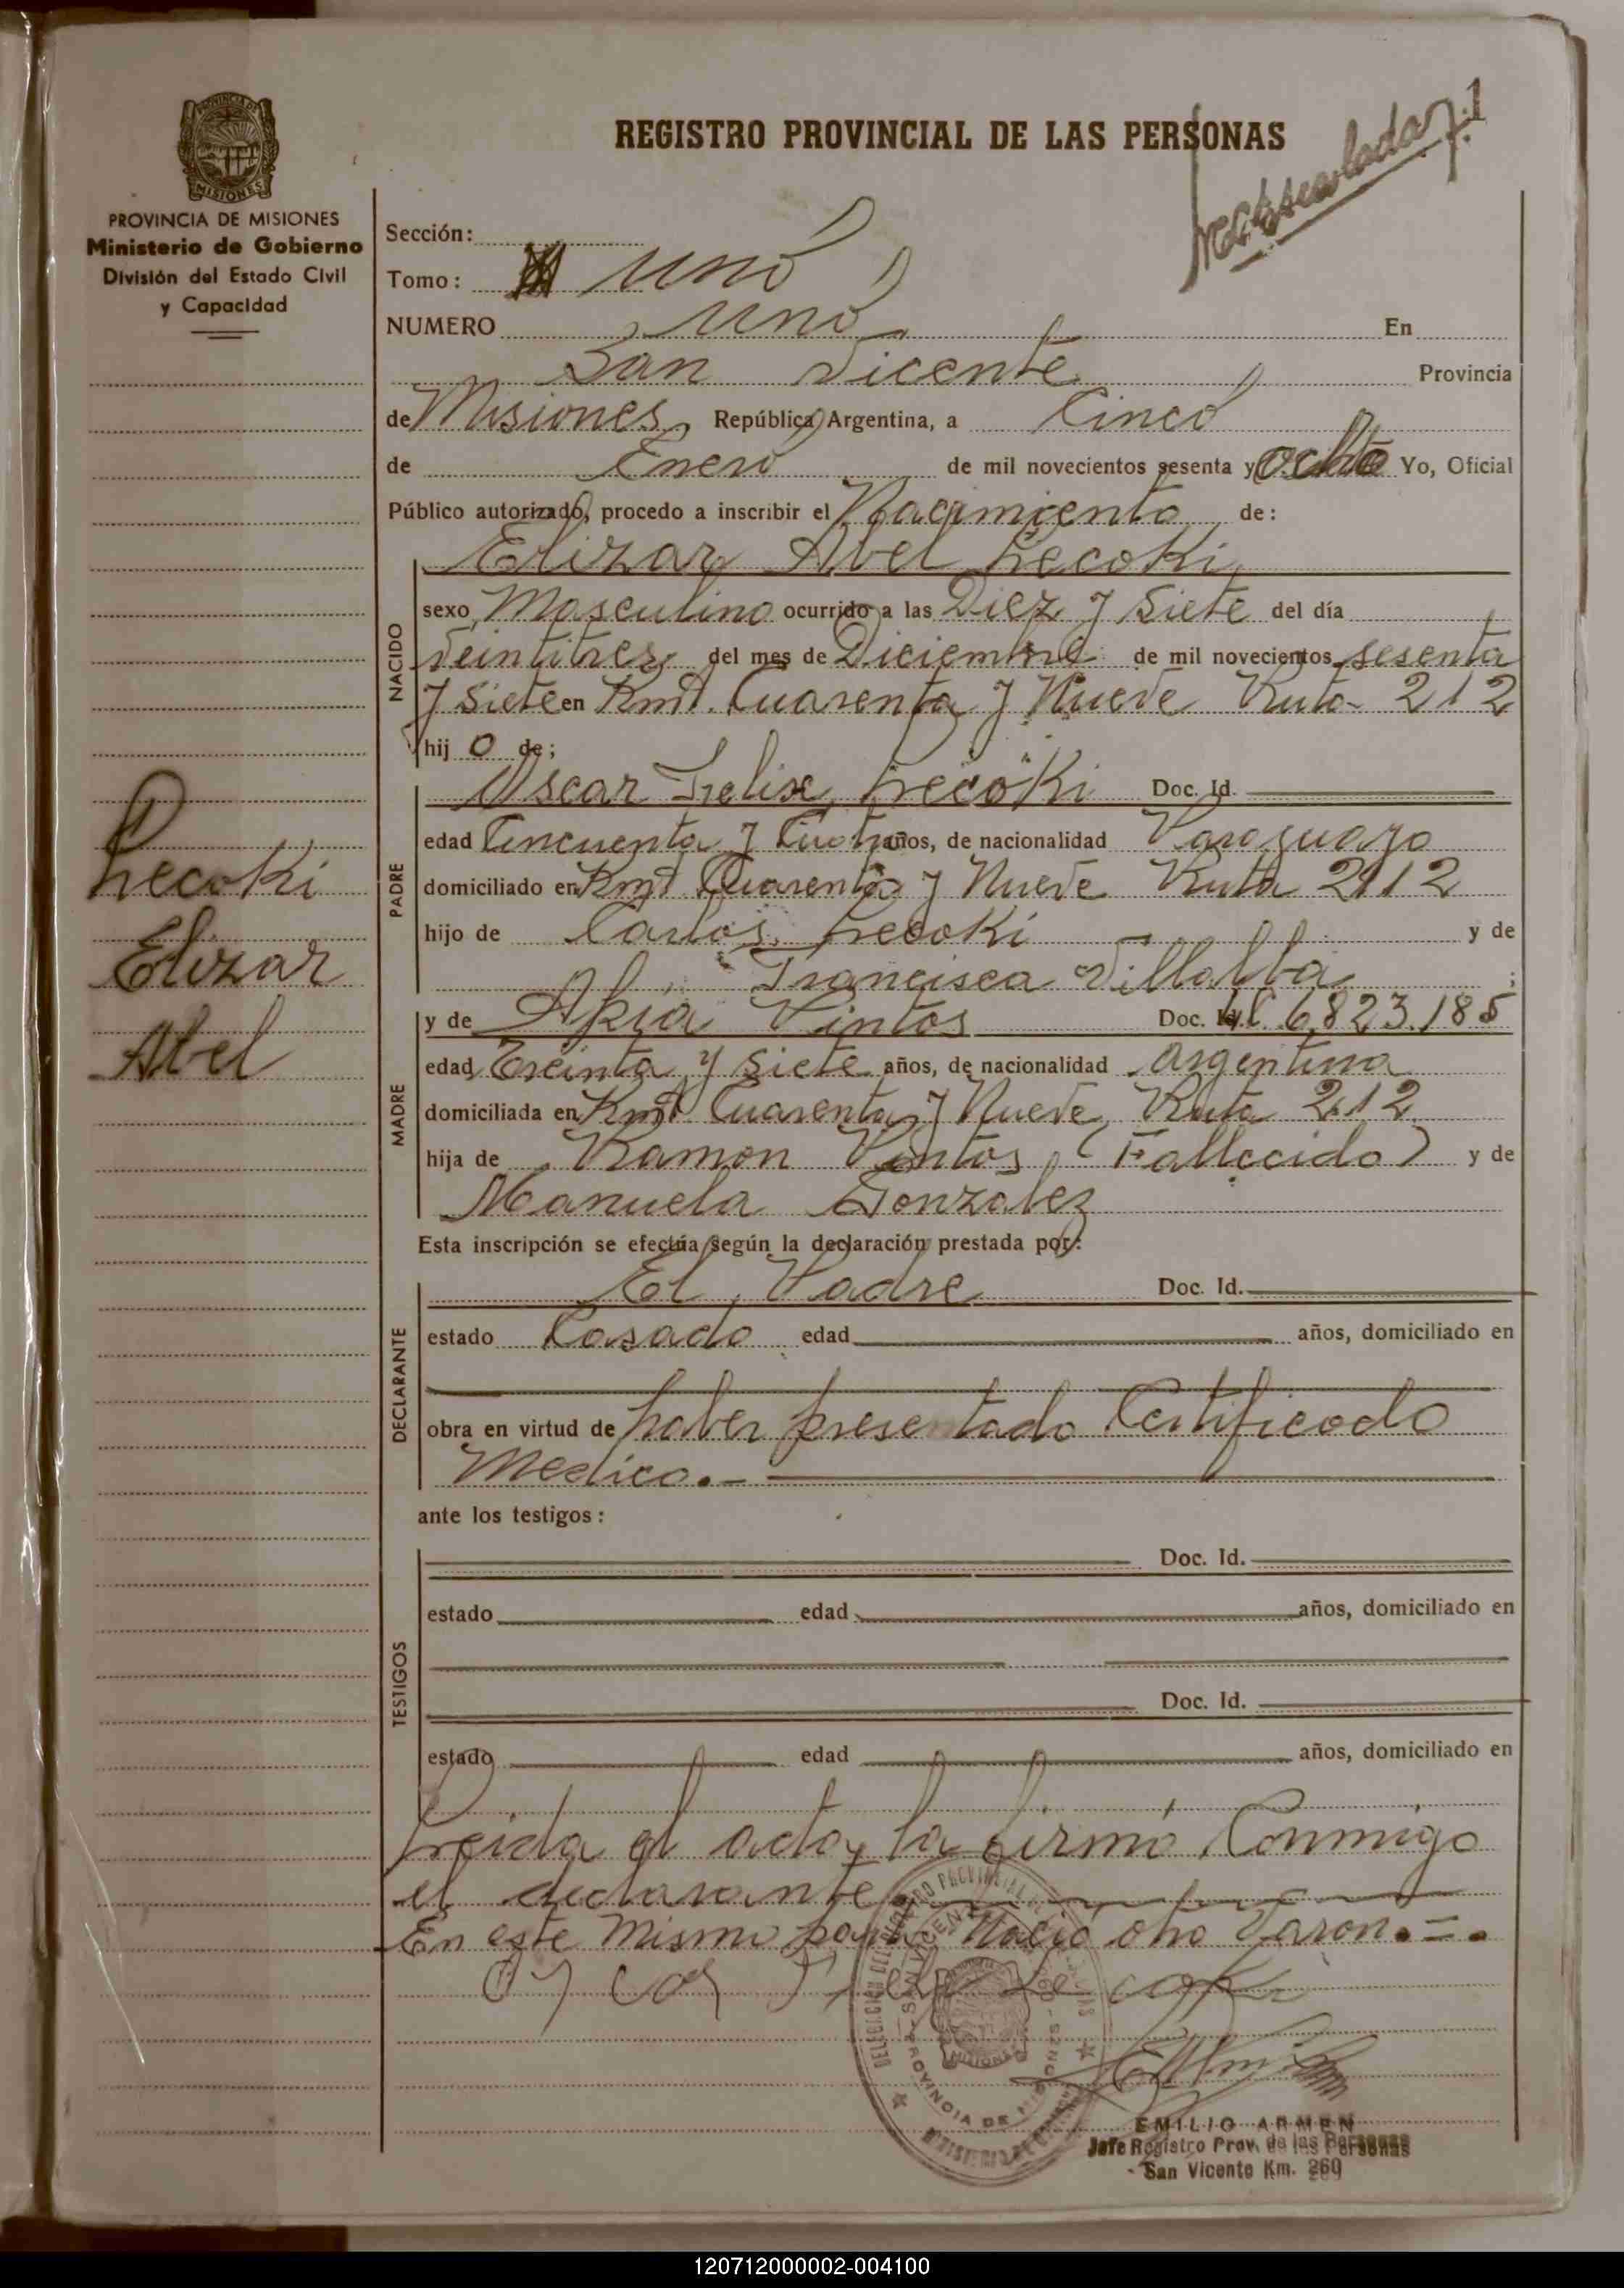 REGISTRO PROVINCIAL DE LAS PERSONAS
1
PROVINCIA DE MISIONES
Ministerio de Gobierno
División del Estado Civil
y Capacidad
Sección:
Tomo: Uno
NUMERO Uno En
San Vicente Provincia
de Misiones República Argentina, a Cinco
de Enero de mil novecientos sesenta y ocho Yo, Oficial
Público autorizado, procedo a inscribir el Nacimiento de:
Elizar Abel Lecoki
NACIDO
sexo Masculino ocurrido a las Diez y Siete del día
Veintitres del mes de Diciembre de mil novecientos sesenta
y Siete en Kmt. Cuarenta y Nueve Ruta 212
hij o de;
PADRE
Oscar Felix Lecoki Doc. Id.
edad Cincuenta y Cuatro años, de nacionalidad Paraguayo
domiciliado en Kmt Cuarenta y Nueve Ruta 212
hijo de Carlos Lecoki y de
Francisca Villalba ;
MADRE
y de Vintos Doc. Id. LC 6823.185
edad Treinta y siete años, de nacionalidad Argentina
domiciliada en Kmt Cuarenta y Nueve Ruta 212
hija de Ramon Vintos (Fallecido) y de
Manuela Gonzalez
Lecoki
Elizar
Abel
Esta inscripción se efectúa según la declaración prestada por:
DECLARANTE
El Padre Doc. Id.
estado Casado edad años, domiciliado en
obra en virtud de haber presentado Certificado
Medico.-
ante los testigos:
TESTIGOS
Doc. Id.
estado edad años, domiciliado en
Doc. Id.
estado edad años, domiciliado en
Leida el acta, la firmó Conmigo
el declarante
En este Mismo parto Nació otro Varon.=.
PROVINCIA DE MISIONES
EMILIO ARMEN
Jefe Registro Prov. de las Personas
San Vicente Km. 260
120712000002-004100